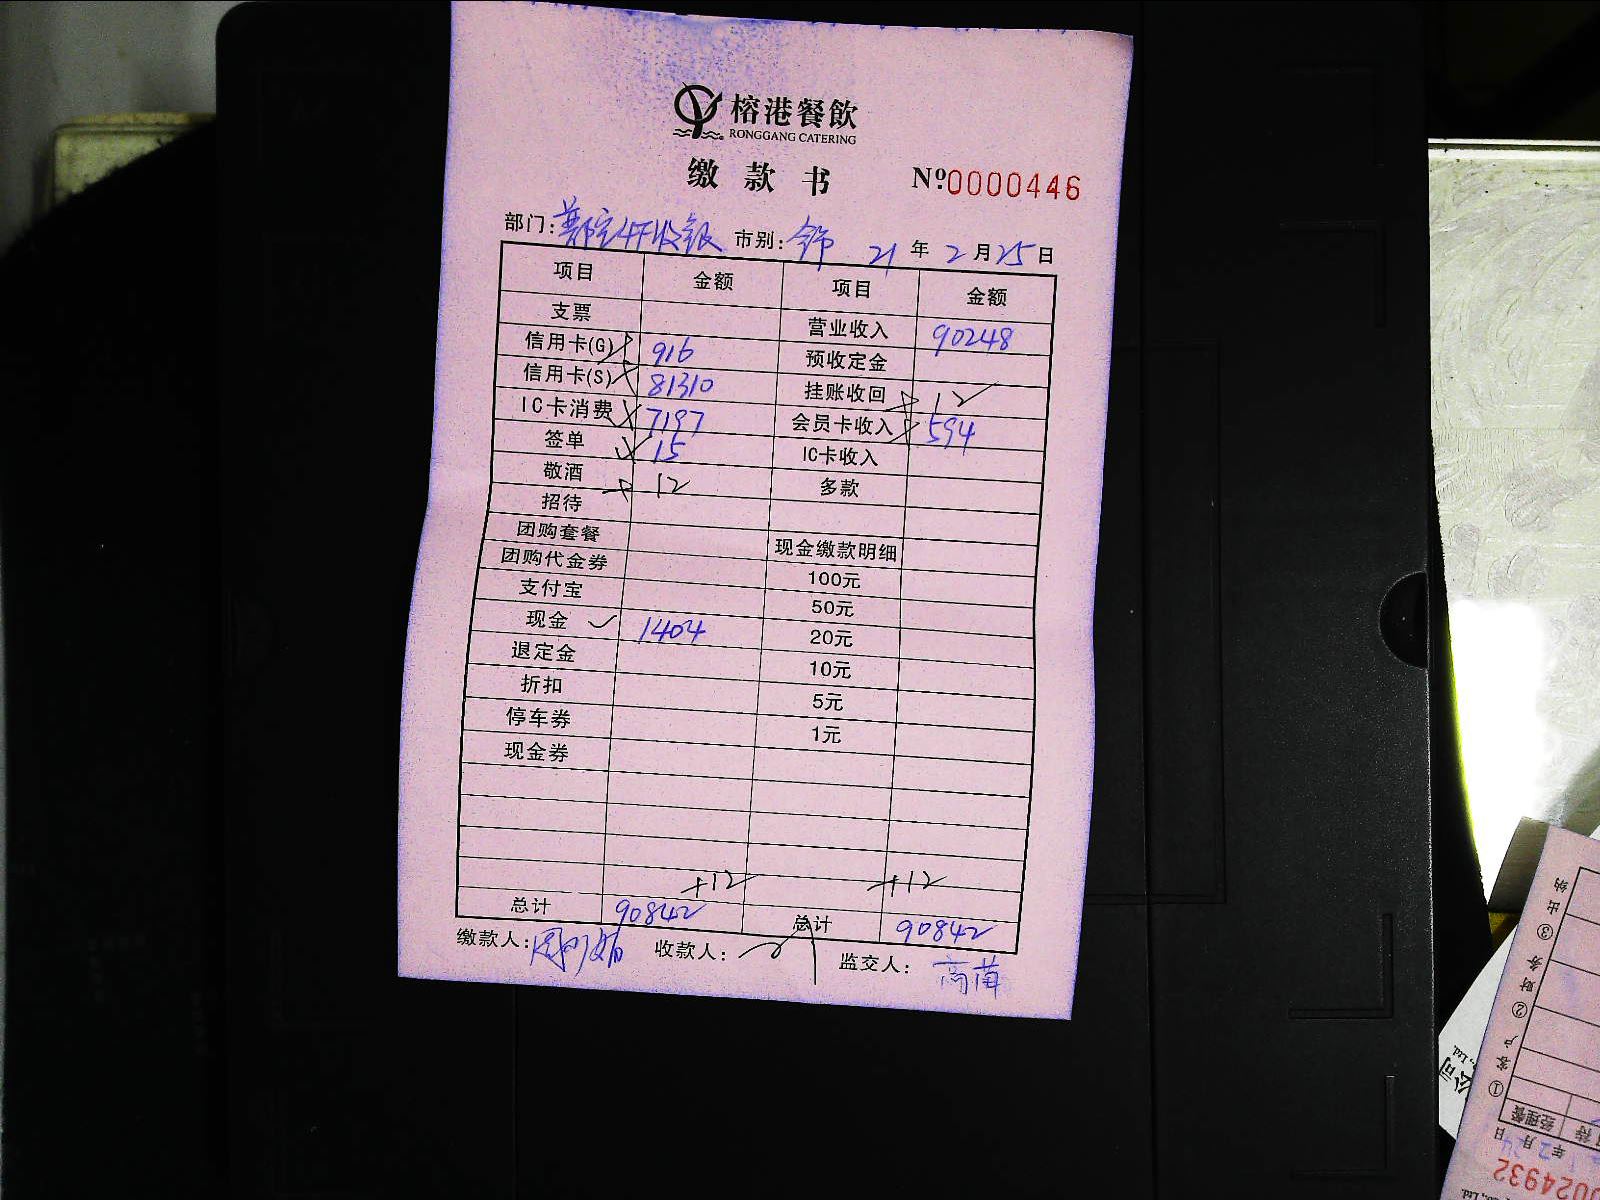 榕港餐飲
RONGGANG CATERING
缴款书 Nº0000446
部门: 4F收银 市别: 21年2月25日
项目 金额 项目 金额
支票 营业收入 90248
信用卡(G) 916 预收定金
信用卡(S) 81310 挂账收回 12
IC卡消费 7197 会员卡收入 594
签单 15 IC卡收入
敬酒 12 多款
招待
团购套餐 现金缴款明细
团购代金券 100元
支付宝 50元
现金 1404 20元
退定金 10元
折扣 5元
停车券 1元
现金券
+12 +12
总计 90842 总计 90842
缴款人: 收款人: 监交人:
①客户②财务③出纳
经理餐
年2月24日
0024932
公司